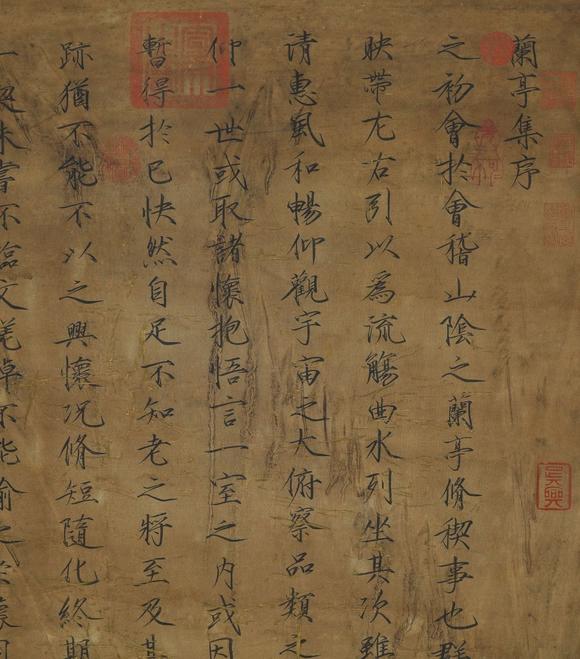 蘭亭集序
之初會於會稽山陰之蘭亭脩稧事也群
映帶左右引以為流觴曲水列坐其次雖
清惠風和暢仰觀宇宙之大俯察品類之
仰一世或取諸懷抱悟言一室之內或因
暫得於已快然自足不知老之將至及其
跡猶不能不以之興懷況脩短隨化終期
一契未嘗不臨文嗟悼不能喻之於懷固